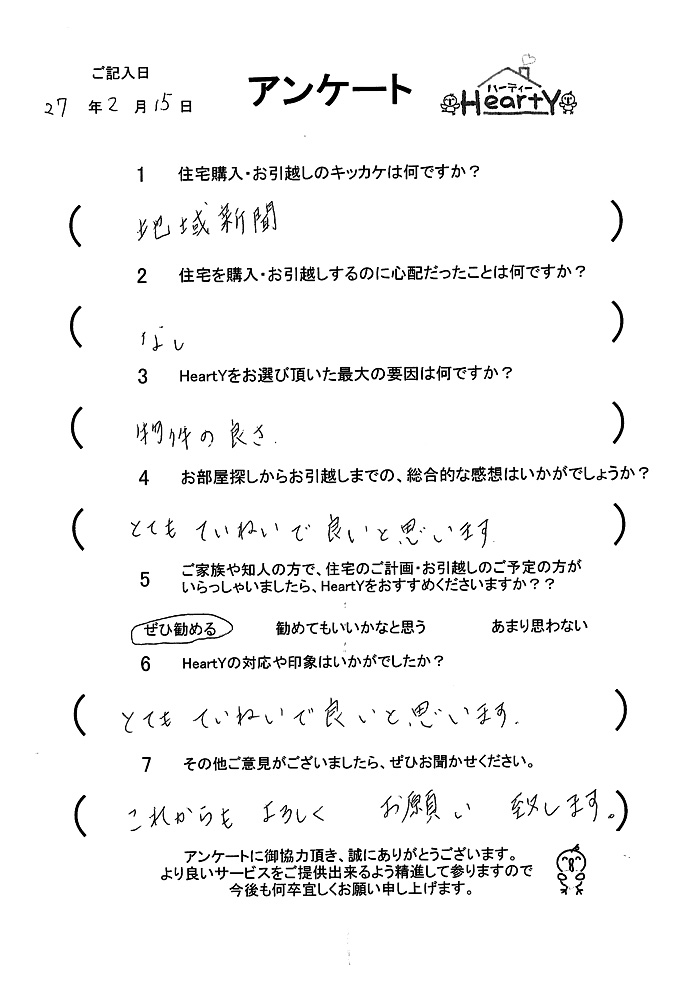 ご記入日
アンケート
ハーティー
HeartY
27 年 2 月 15 日
1 住宅購入・お引越しのキッカケは何ですか？
( 地域新聞 )
2 住宅を購入・お引越しするのに心配だったことは何ですか？
( なし )
3 HeartYをお選び頂いた最大の要因は何ですか？
( 物件の良さ. )
4 お部屋探しからお引越しまでの、総合的な感想はいかがでしょうか？
( とても ていねいで 良いと思います. )
5 ご家族や知人の方で、住宅のご計画・お引越しのご予定の方が
いらっしゃいましたら、HeartYをおすすめくださいますか？？
ぜひ勧める 勧めてもいいかなと思う あまり思わない
6 HeartYの対応や印象はいかがでしたか？
( とても ていねいで 良いと思います. )
7 その他ご意見がございましたら、ぜひお聞かせください。
( これからも よろしく お願い 致します。)
アンケートに御協力頂き、誠にありがとうございます。
より良いサービスをご提供出来るよう精進して参りますので
今後も何卒宜しくお願い申し上げます。